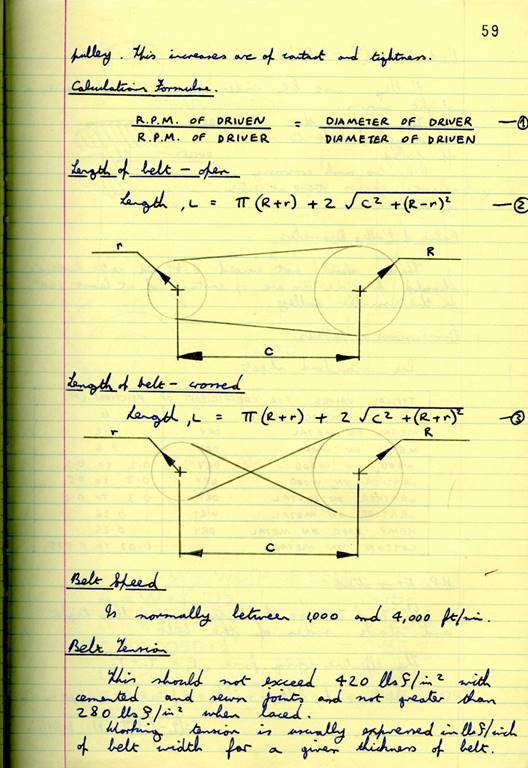 59
pulley. This increases arc of contact and tightness.
Calculation Formulae.
R.P.M. OF DRIVEN = DIAMETER OF DRIVER —①
R.P.M. OF DRIVER DIAMETER OF DRIVEN
Length of belt - open
Length, L = π(R+r) + 2 √C² + (R-r)² —②
r R
C
Length of belt - crossed
Length, L = π(R+r) + 2 √C² + (R+r)² —③
r R
C
Belt Speed
Is normally between 1,000 and 4,000 ft/min.
Belt Tension
This should not exceed 420 lbs f/in² with
cemented and sewn joints and not greater than
280 lbs f/in² when laced.
Working tension is usually expressed in lbs f/inch
of belt width for a given thickness of belt.